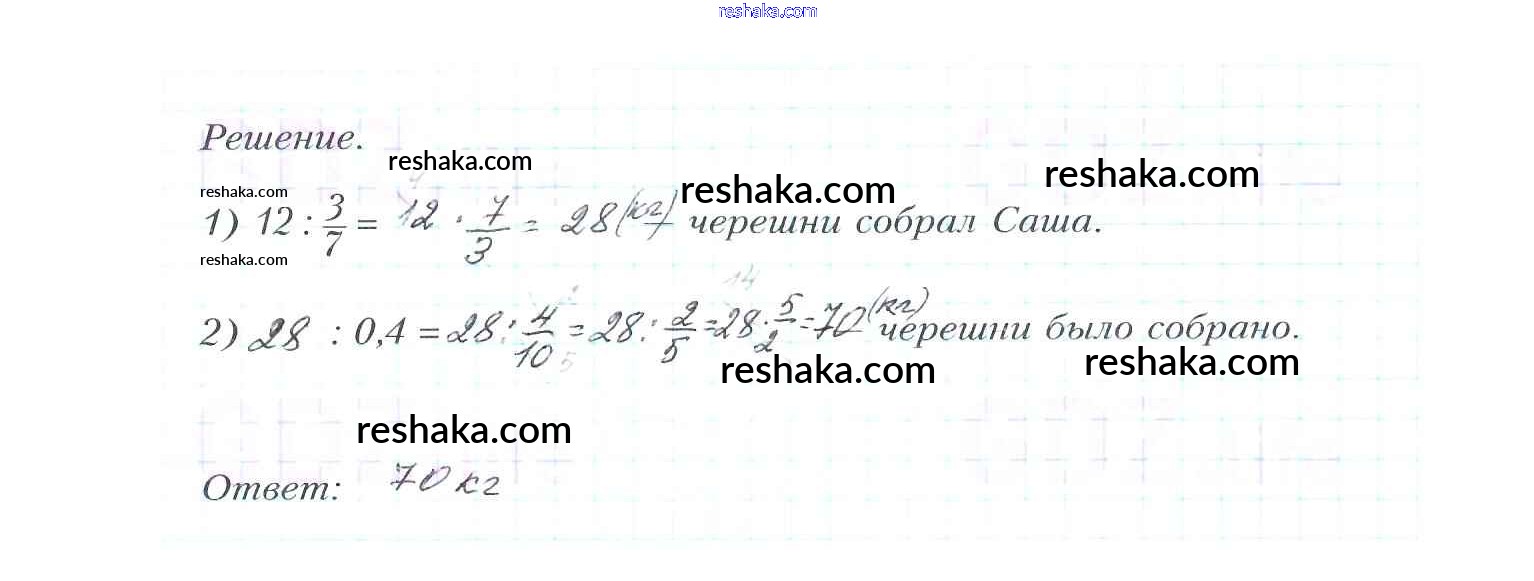 reshaka.com
Решение.
reshaka.com reshaka.com reshaka.com
reshaka.com
1) 12 : 3/7 = 12 · 7/3 = 28 (кг) черешни собрал Саша.
reshaka.com
14
2) 28 : 0,4 = 28 : 4/10 = 28 : 2/5 = 28 · 5/2 = 70 (кг) черешни было собрано.
5
reshaka.com reshaka.com
reshaka.com
Ответ: 70 кг